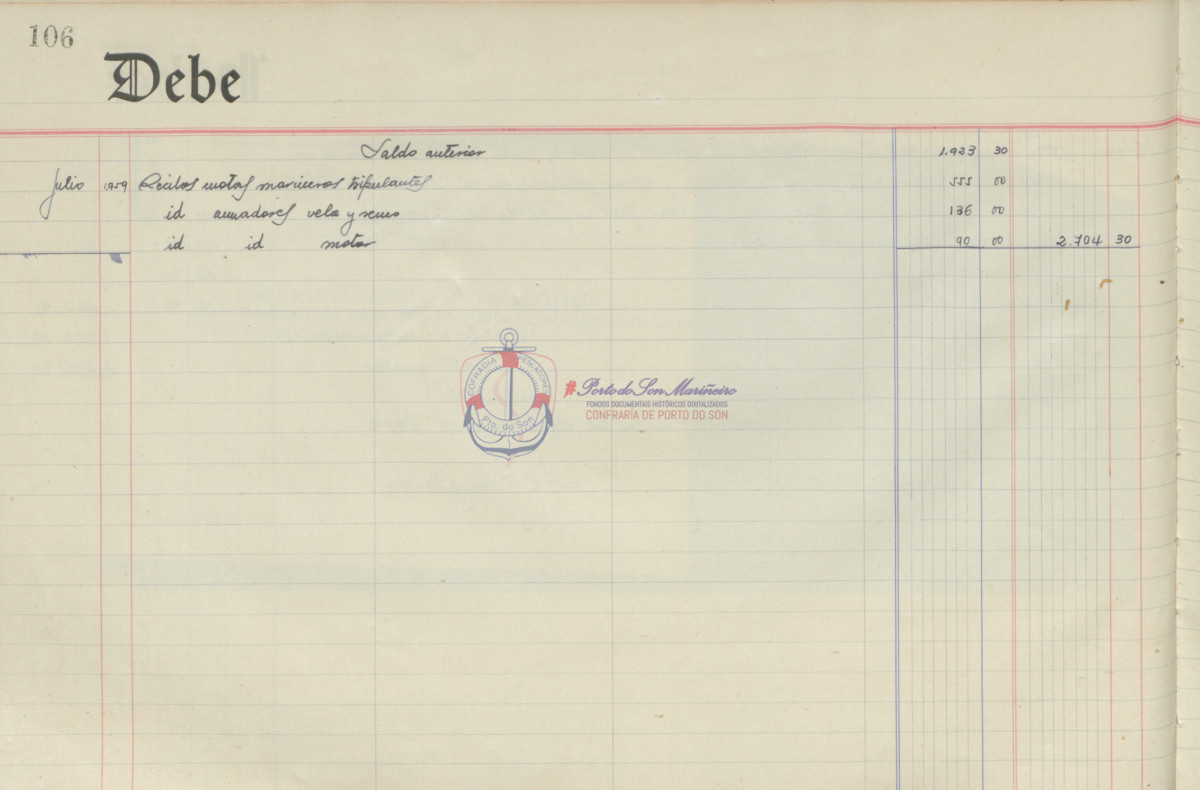 106
Debe
Saldo anterior 1.923 30
Julio 1959 Recibos cuotas marineros tripulantes 555 00
id armadores vela y remo 136 00
id id motor 90 00 2.704 30
COFRADIA PESCADORES
Pto. do Son
#Porto do Son Mariñeiro
FONDOS DOCUMENTAIS HISTÓRICOS DIXITALIZADOS
CONFRARÍA DE PORTO DO SON